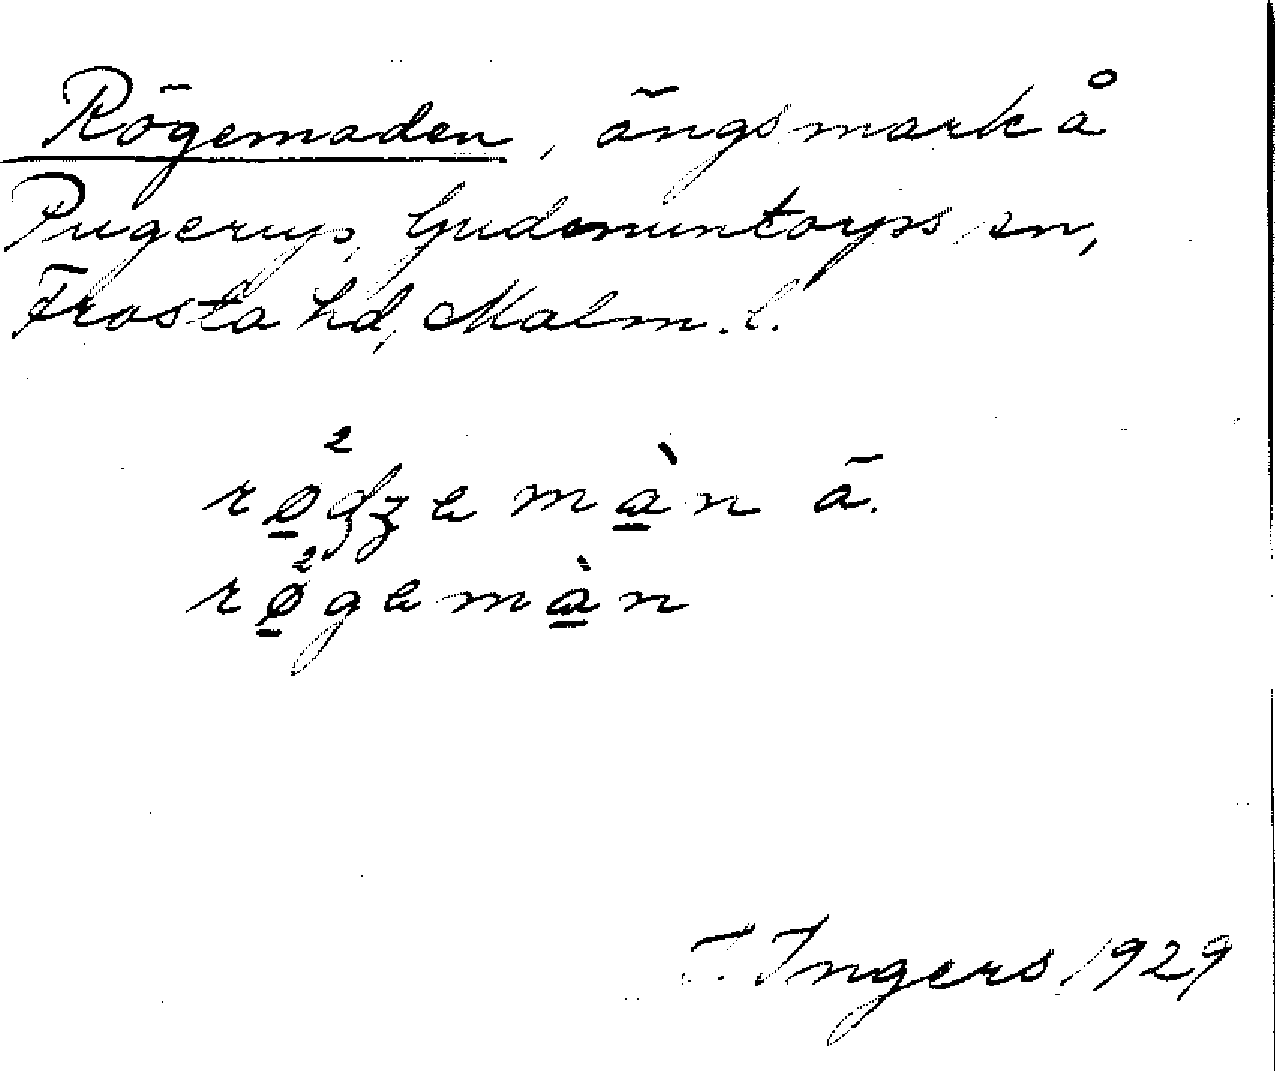 Rögemaden, ängsmark å
Pugerup, Gudmuntorps sn,
Frosta hd, Malm. l.
rø̱²dʒe mà̱n ā.
rø̱²gemà̱n
I. Ingers 1929